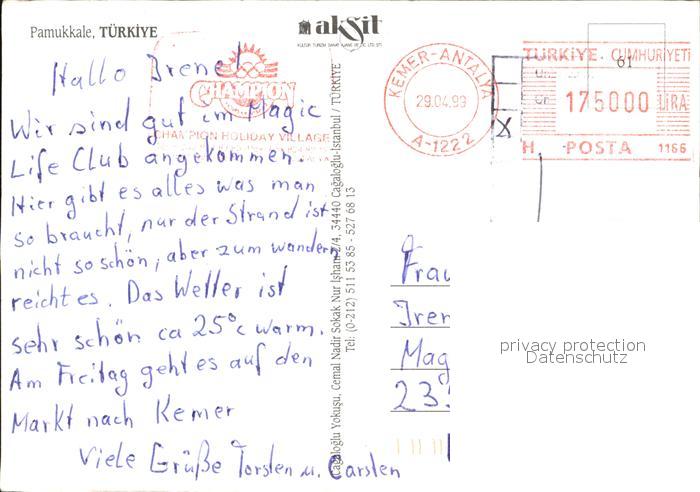 Pamukkale, TÜRKİYE
akşit
Hallo Irene!
CHAMPION
CHAMPION HOLIDAY VILLAGE
Wir sind gut im Magic
Life Club angekommen.
Hier gibt es alles was man
so braucht, nur der Strand ist
nicht so schön, aber zum wandern
reicht es. Das Wetter ist
sehr schön ca 25°c warm.
Am Freitag geht es auf den
Markt nach Kemer
Viele Grüße Torsten u. Carsten
Cağaloğlu Yokuşu, Cemal Nadir Sokak Nur İşhanı 2/4, 34440 Cağaloğlu-İstanbul / TÜRKİYE
Tel: (0-212) 511 53 85 - 527 68 13
KEMER-ANTALYA
29.04.99
A-1222
TÜRKİYE CUMHURİYETİ
61
175000 LİRA
X
H. POSTA 1166
Frau
Iren
Mag
23
privacy protection
Datenschutz